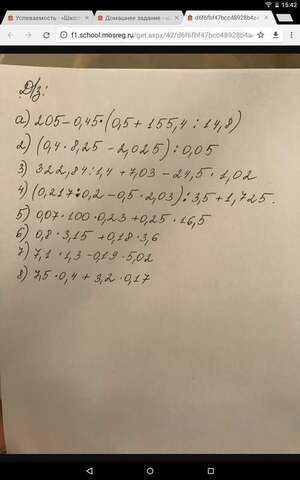 15:42
Успеваемость - «Шко
Домашнее задание - «
d6f6fbf47bcc48928b4c
f1.school.mosreg.ru/get.aspx/42/d6f6fbf47bcc48928b4a
Д/з:
а) 205 - 0,45 · (0,5 + 155,4 : 14,8)
2) (0,4 · 8,25 - 2,025) : 0,05
3) 322,84 : 1,4 + 7,03 - 24,5 · 1,02
4) (0,217 : 0,2 - 0,5 · 2,03) : 3,5 + 1,725.
5) 0,07 · 100 · 0,23 + 0,25 · 16,5
6) 0,8 · 3,15 + 0,18 · 3,6
7) 7,1 · 1,3 - 0,19 · 5,02
8) 7,5 · 0,4 + 3,2 · 0,17